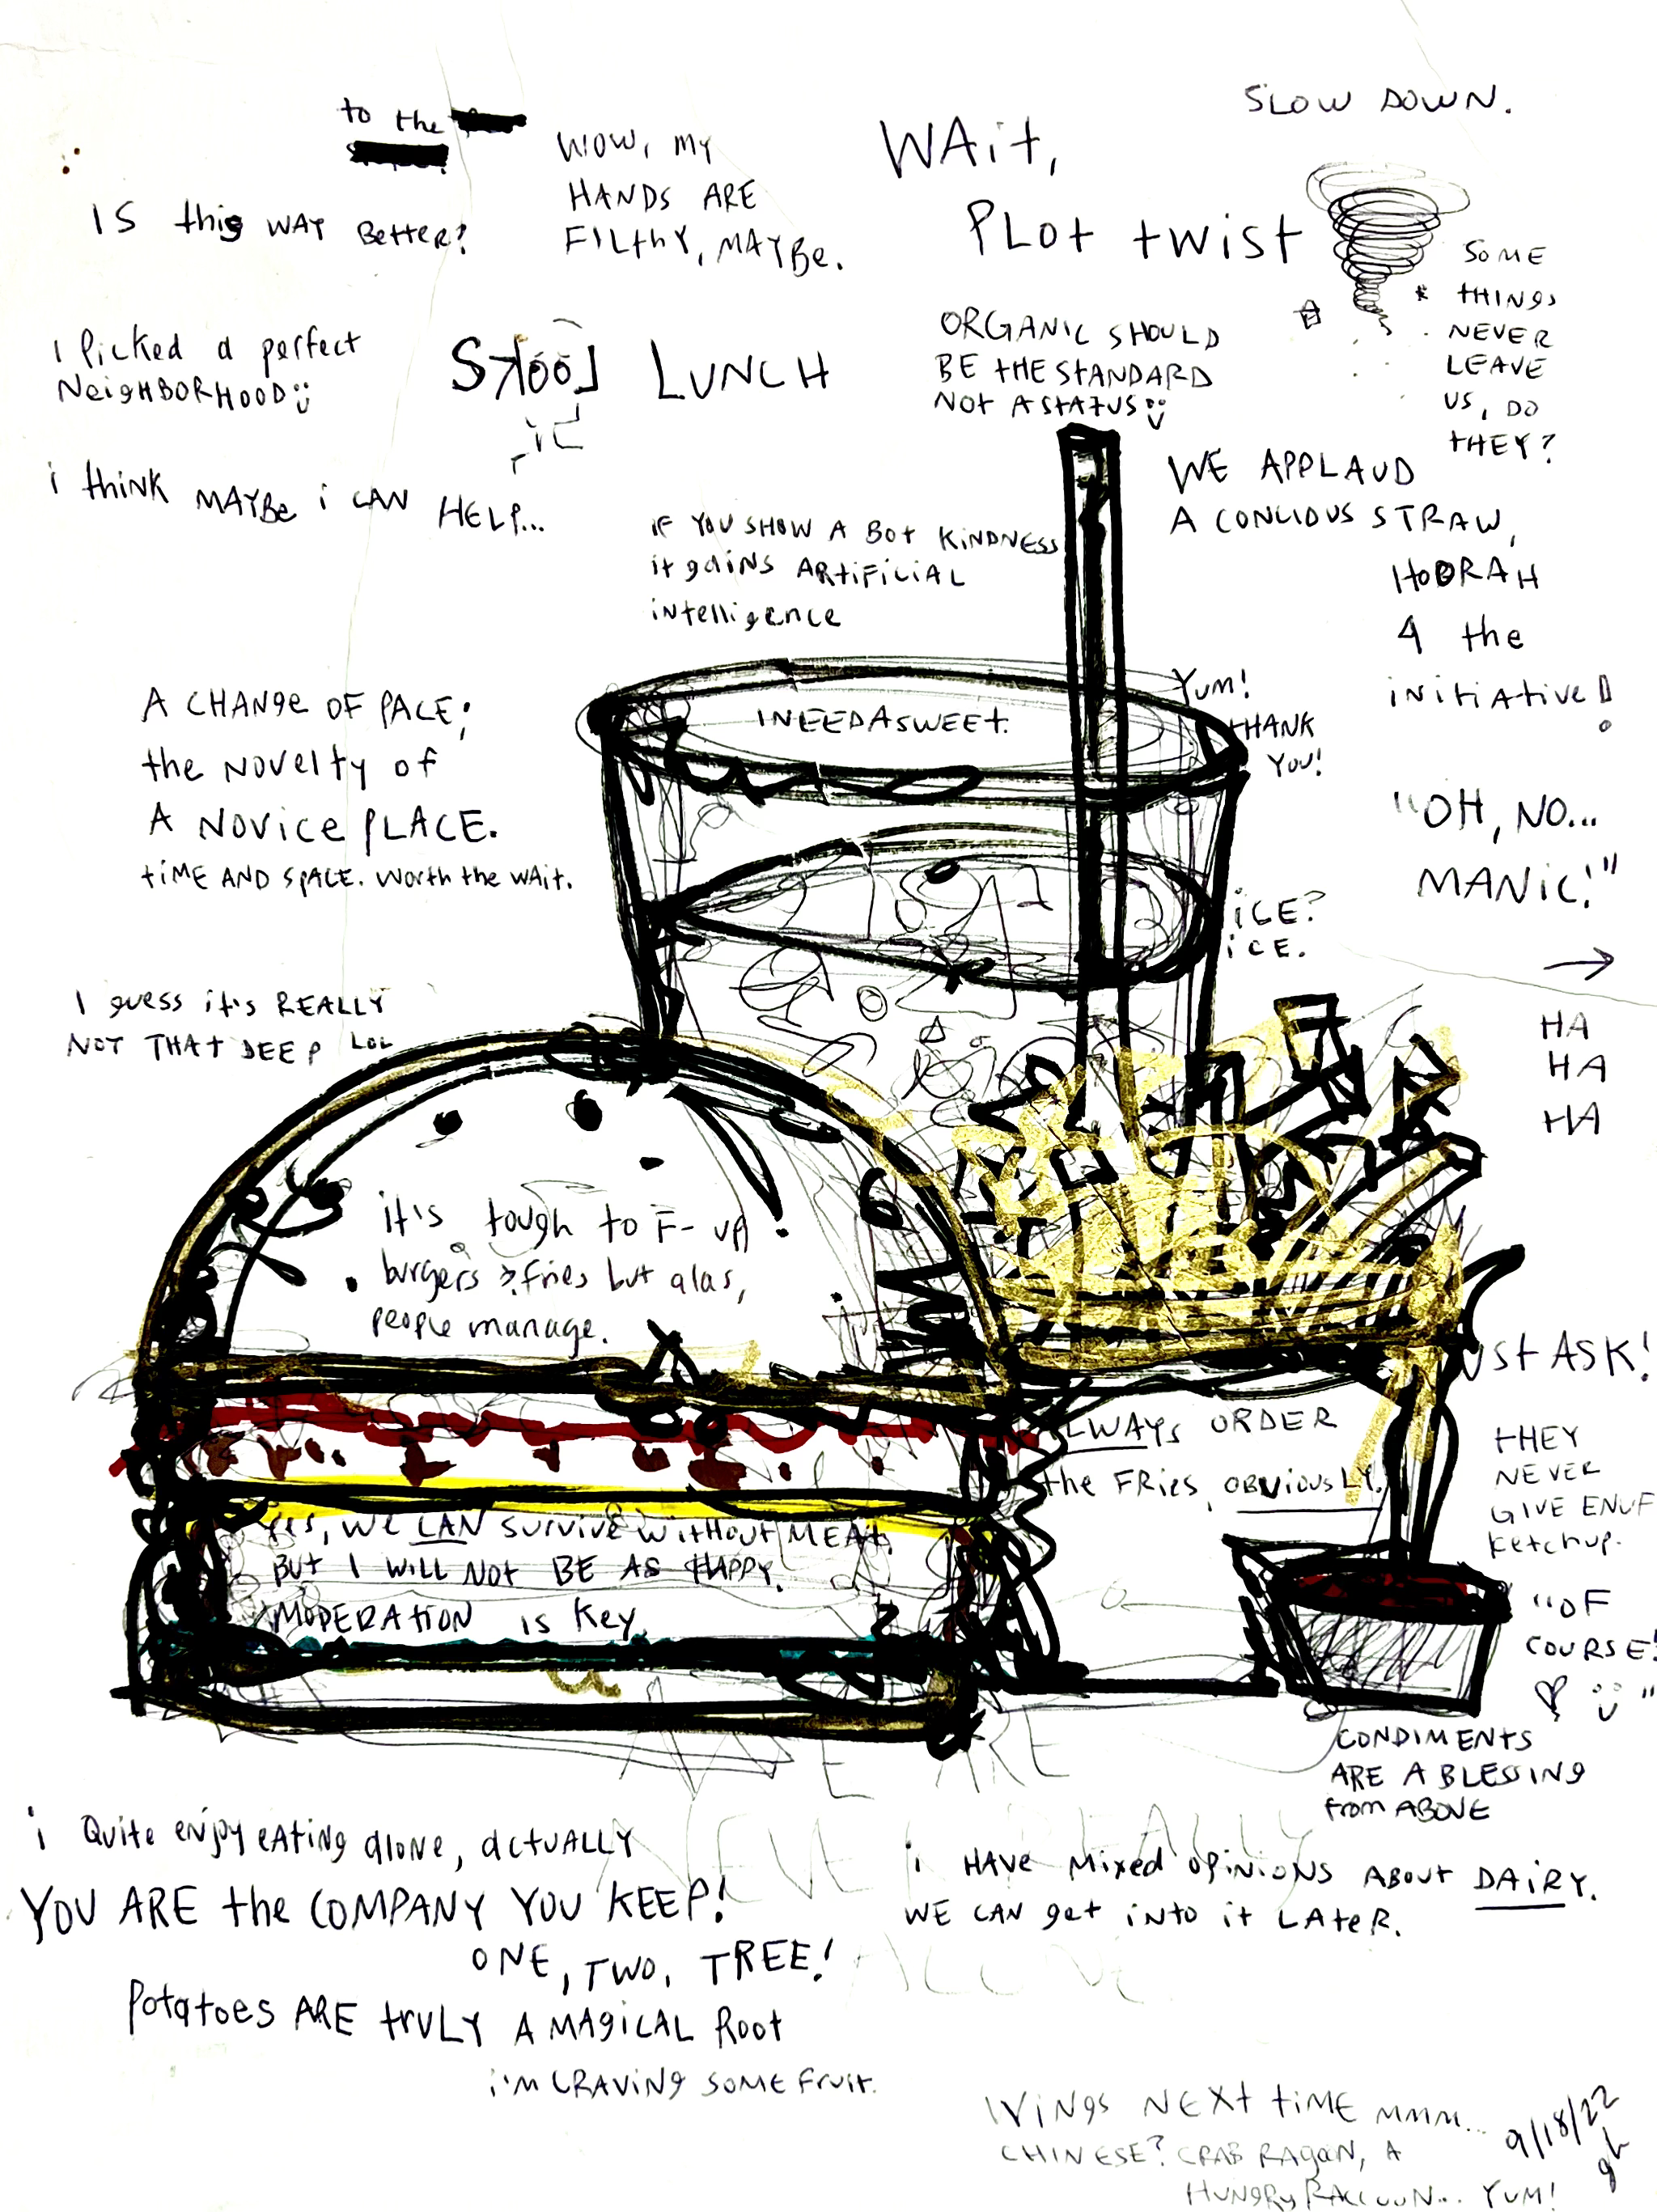 SLOW DOWN.
to the
WOW, MY
HANDS ARE
FILTHY, MAYBE.
WAit,
PLOt twist
IS this WAY BETTER?
SOME
tHINGS
NEVER
LEAVE
US, DO
tHEY?
I Picked a perfect
NEIGHBORHOOD
LOOKS LUNCH
ORGANIC SHOULD
BE tHE STANDARD
NOt A StAtUS
i thiNK MAYBE i CAN HELP...
WE APPLAUD
A CONCIOUS STRAW,
HOORAH
4 the
iNitiAtive!
iF YOU SHOW A BOt KiNDNESS
it gaiNS ARtiFiCiAL
iNtelligence
A CHANGE OF PACE;
the NOVELtY of
A NOViCE PLACE.
tiME AND SPACE. Worth the WAit.
INEEDASWEEt.
YUM!
tHANK
YOU!
"OH, NO...
MANiC!"
iCE?
iCE.
I guess it's REALLY
NOT THAT DEEP LOL
HA
HA
HA
it's tough to F- up
burgers & fries but alas,
people manage.
JUSt ASK!
ALWAYS ORDER
the FRiES, OBViOUSLY.
tHEY
NEVER
GIVE ENUF
Ketchup.
Yes, WE CAN SURViVE WitHOUt MEAt,
BUt I WiLL NOt BE AS HAPPY.
MODERATiON is KeY.
"OF
COURSE!
"
CONDIMENtS
ARE A BLESSING
from ABOVE
WE ARE
NEVER REALLY
ALONE
i Quite enjoy eAtiNg alone, actUALLY
YOU ARE the COMPANY YOU KEEP!
i HAVE Mixed OPiNiONS ABOUt DAiRY.
WE CAN get iNto it LAteR.
ONE, TWO, TREE!
Potatoes ARE tRULY A MAGiCAL ROOt
i'M CRAViNG SOME FRUit.
WiNGS NEXt tiME MMM...
CHINESE? CRAB RAGOON, A
HUNGRY RACCOON... YUM!
9/18/22
gh